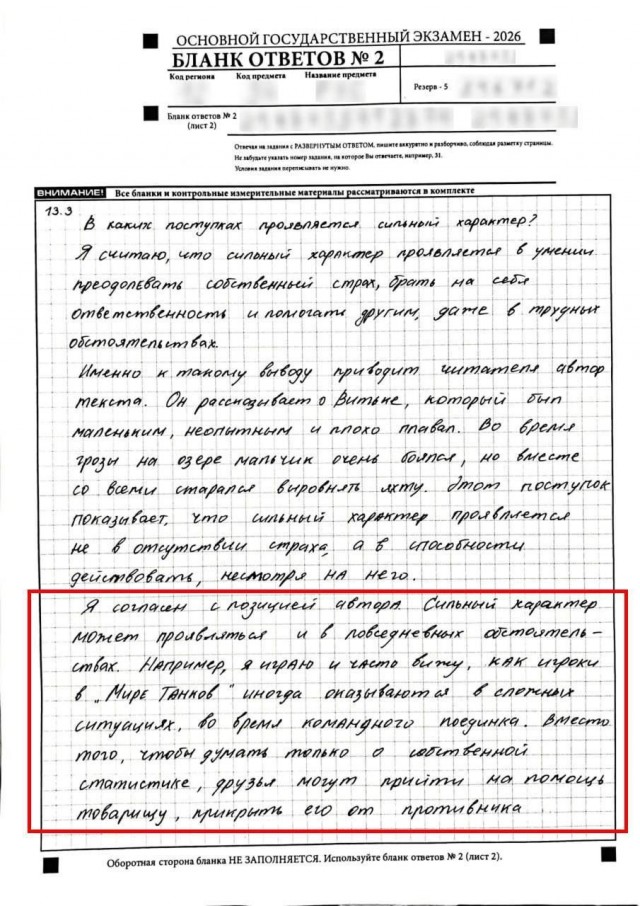 ОСНОВНОЙ ГОСУДАРСТВЕННЫЙ ЭКЗАМЕН - 2026
БЛАНК ОТВЕТОВ № 2
Код региона Код предмета Название предмета
Резерв - 5
Бланк ответов № 2
(лист 2)
Отвечая на задания с РАЗВЕРНУТЫМ ОТВЕТОМ, пишите аккуратно и разборчиво, соблюдая разметку страницы.
Не забудьте указать номер задания, на которое Вы отвечаете, например, 31.
Условия задания переписывать не нужно.
ВНИМАНИЕ! Все бланки и контрольные измерительные материалы рассматриваются в комплекте
13.3
В каких поступках проявляется сильный характер?
Я считаю, что сильный характер проявляется в умении
преодолевать собственный страх, брать на себя
ответственность и помогать другим, даже в трудных
обстоятельствах.
Именно к такому выводу приводит читателя автор
текста. Он рассказывает о Витьке, который был
маленьким, неопытным и плохо плавал. Во время
грозы на озере мальчик очень боялся, но вместе
со всеми старался выровнять яхту. Этот поступок
показывает, что сильный характер проявляется
не в отсутствии страха, а в способности
действовать, несмотря на него.
Я согласен с позицией автора. Сильный характер
может проявляться и в повседневных обстоятель-
ствах. Например, я играю и часто вижу, как игроки
в „Мире Танков" иногда оказываются в сложных
ситуациях, во время командного поединка. Вместо
того, чтобы думать только о собственной
статистике, друзья могут прийти на помощь
товарищу, прикрыть его от противника
Оборотная сторона бланка НЕ ЗАПОЛНЯЕТСЯ. Используйте бланк ответов № 2 (лист 2).